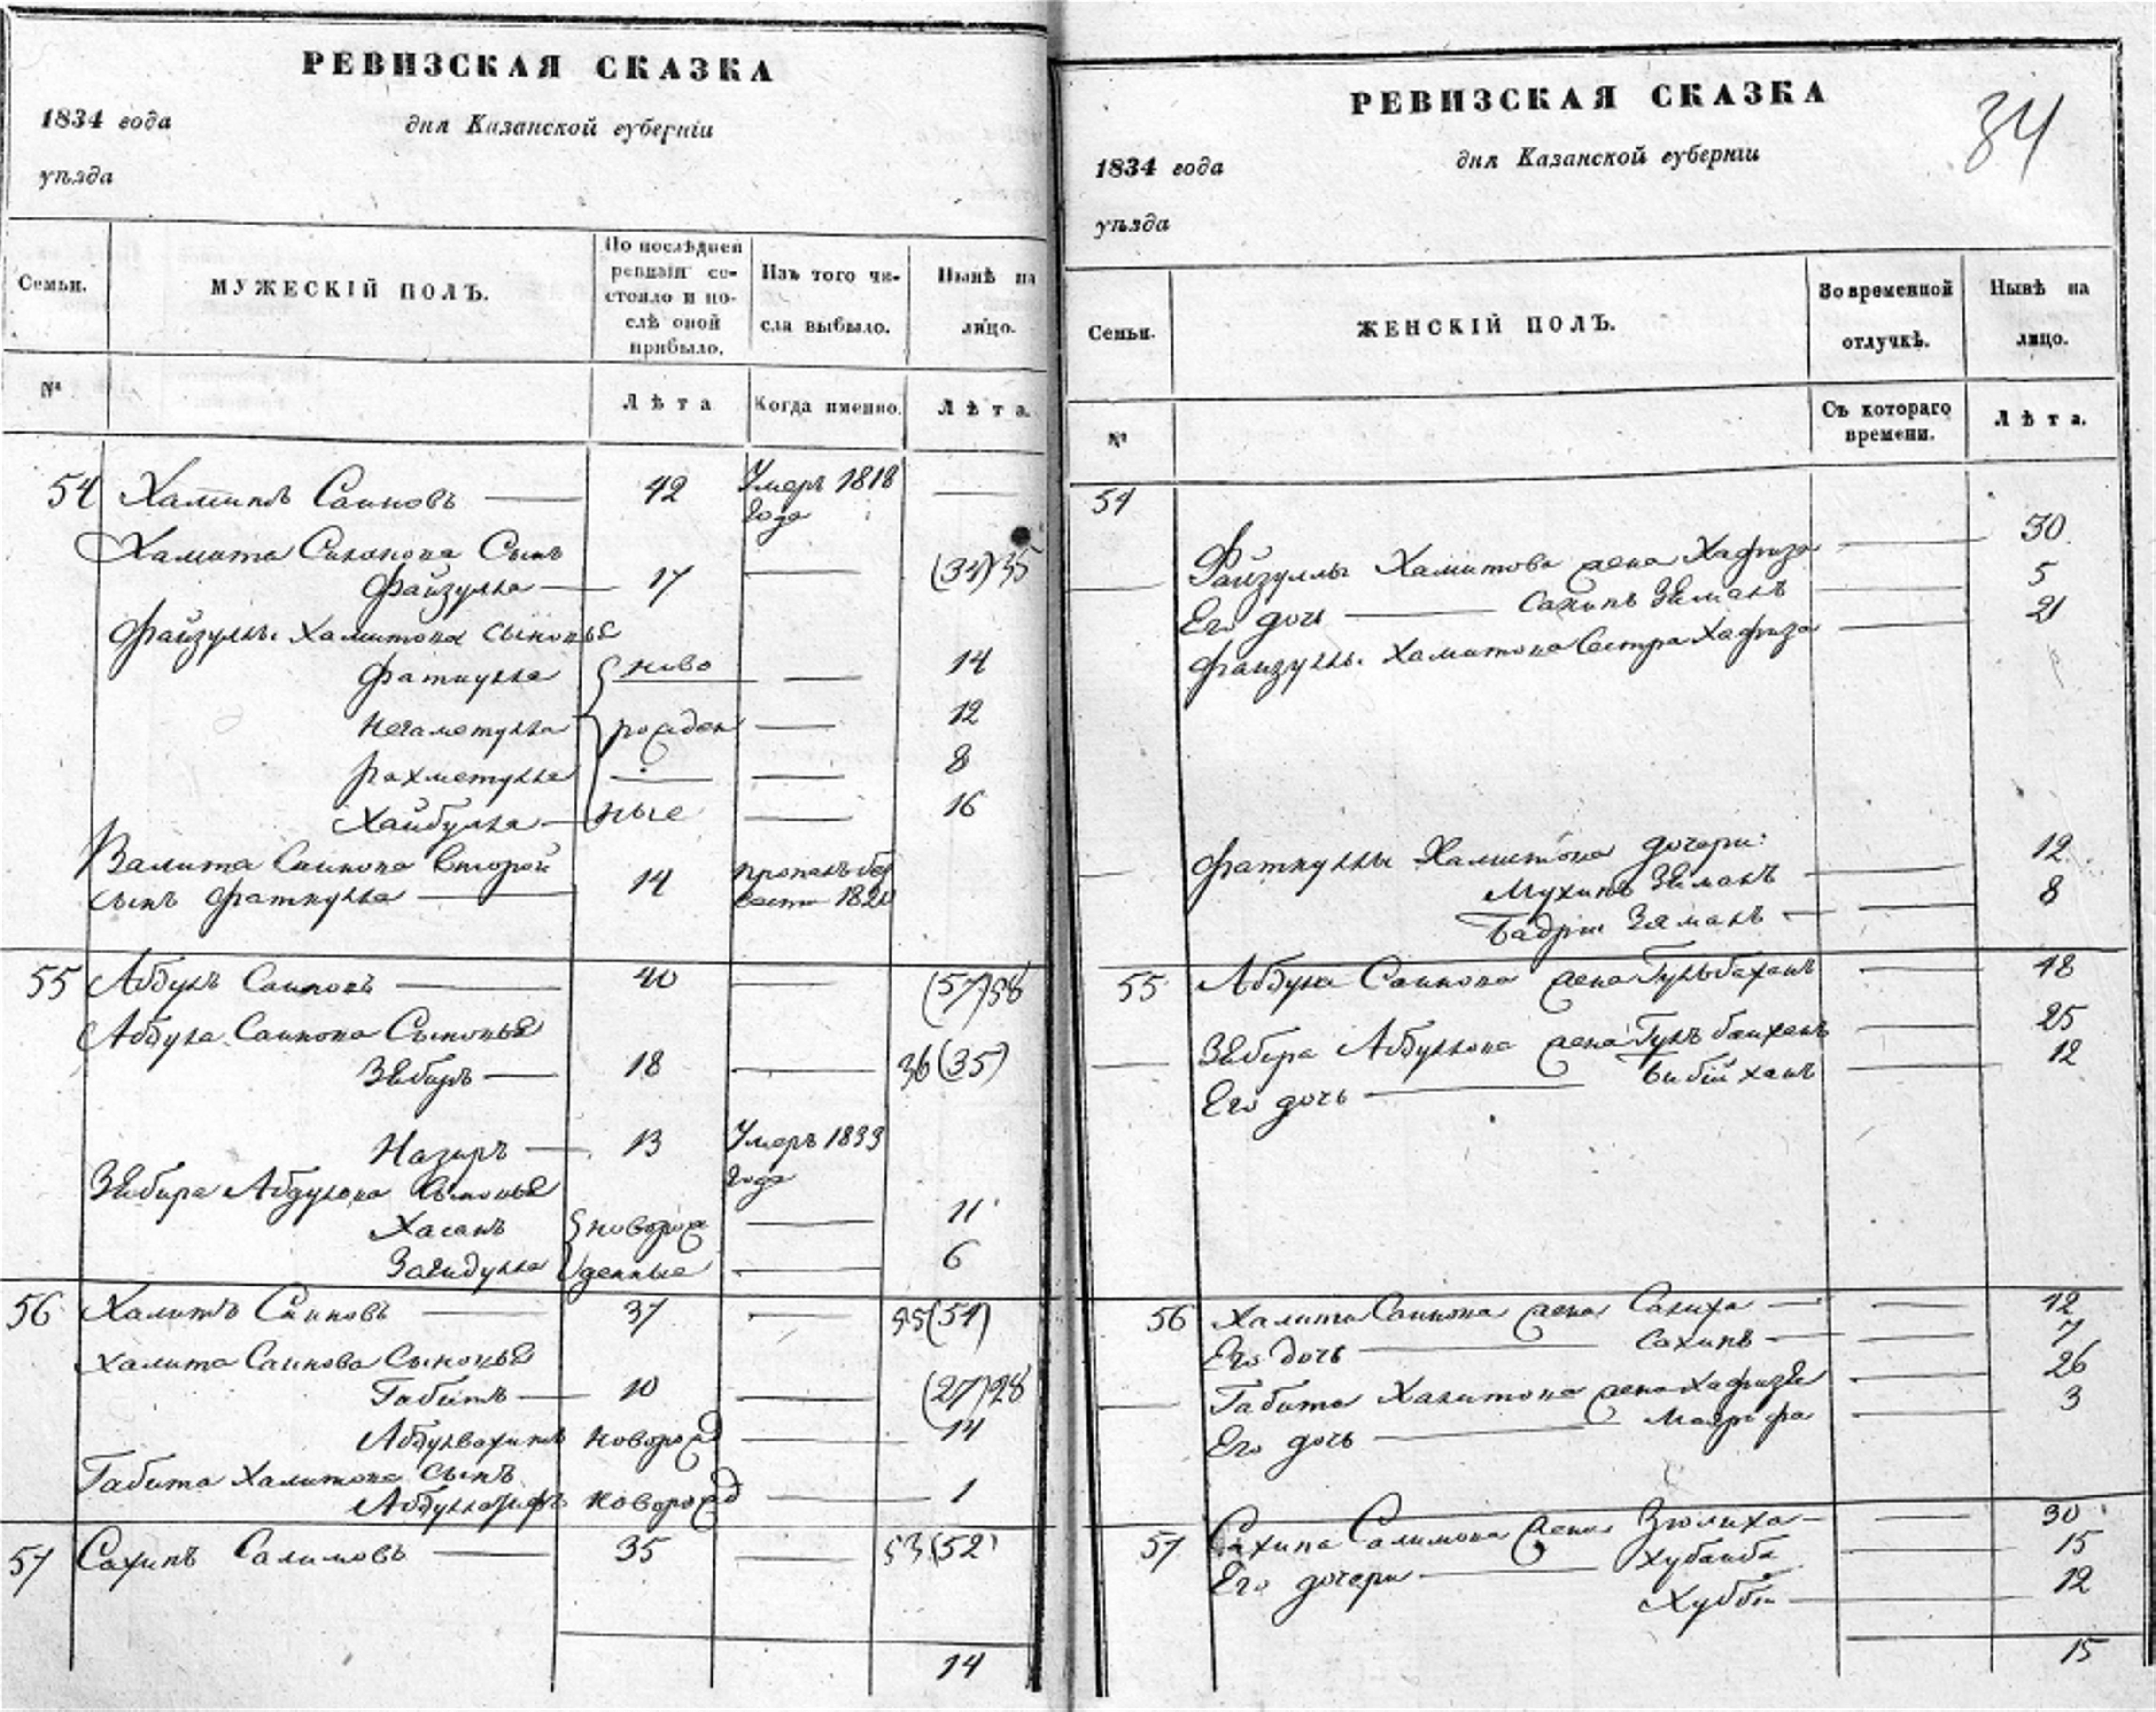 РЕВИЗСКАЯ СКАЗКА
1834 года
дня Казанской губерніи
уѣзда
Семьи.
МУЖЕСКІЙ ПОЛЪ.
По послѣдней ревизіи состояло и послѣ оной прибыло.
Изъ того числа выбыло.
Нынѣ на лицо.
№
Лѣта
Когда именно.
Лѣта.
54 Хамитъ Саиновъ 42 Умеръ 1818 года
Хамита Сынъ
Файзулла 17 (34) 35
Файзуллы Хамитова сыновья
Фаткулла ново 14
Негаметулла рожден 12
Рахметулла 8
Хайбулла ные 16
Валита Саинова второй
сынъ Фаткулла 14 пропалъ без вести
55 Абдулъ Саиновъ 40 (57) 58
Абдула Саинова Сыновья
Зябиръ 18 36 (35)
Назиръ 13 Умеръ 1833 года
Зябира Абдулова Сыновья
Хасанъ новорож 11
Загидулла денные 6
56 Халитъ Саиновъ 37 55 (54)
Халита Саинова Сыновья
Габитъ 10 (27) 28
новорожд 14
Габита Халитова сынъ
новорожд 1
57 Сахипъ Салимовъ 35 53 (52)
14
РЕВИЗСКАЯ СКАЗКА
34
1834 года
дня Казанской губерніи
уѣзда
Семьи.
ЖЕНСКІЙ ПОЛЪ.
Во временной отлучкѣ.
Нынѣ на лицо.
№
Съ котораго времени.
Лѣта.
54
Файзуллы Хамитова жена Хафиза 30
Его дочь Сахипъ Зяманъ 5
Файзуллы Хамитова Сестра Хафиза 21
Фаткуллы Хамитова дочери:
Зяманъ 12
Бадри Зяманъ 8
55 Абдула Саинова жена Гульбаханъ 48
Зябира Абдуллова жена 25
Его дочь Бибій ханъ 12
56 Халита Саинова жена Салиха 42
Его дочь Сахипъ 7
Габита Халитова жена Хафизя 26
Его дочь 3
57 Сахипа Салимова жена Зюлиха 30
Его дочери 15
Хубби 12
15